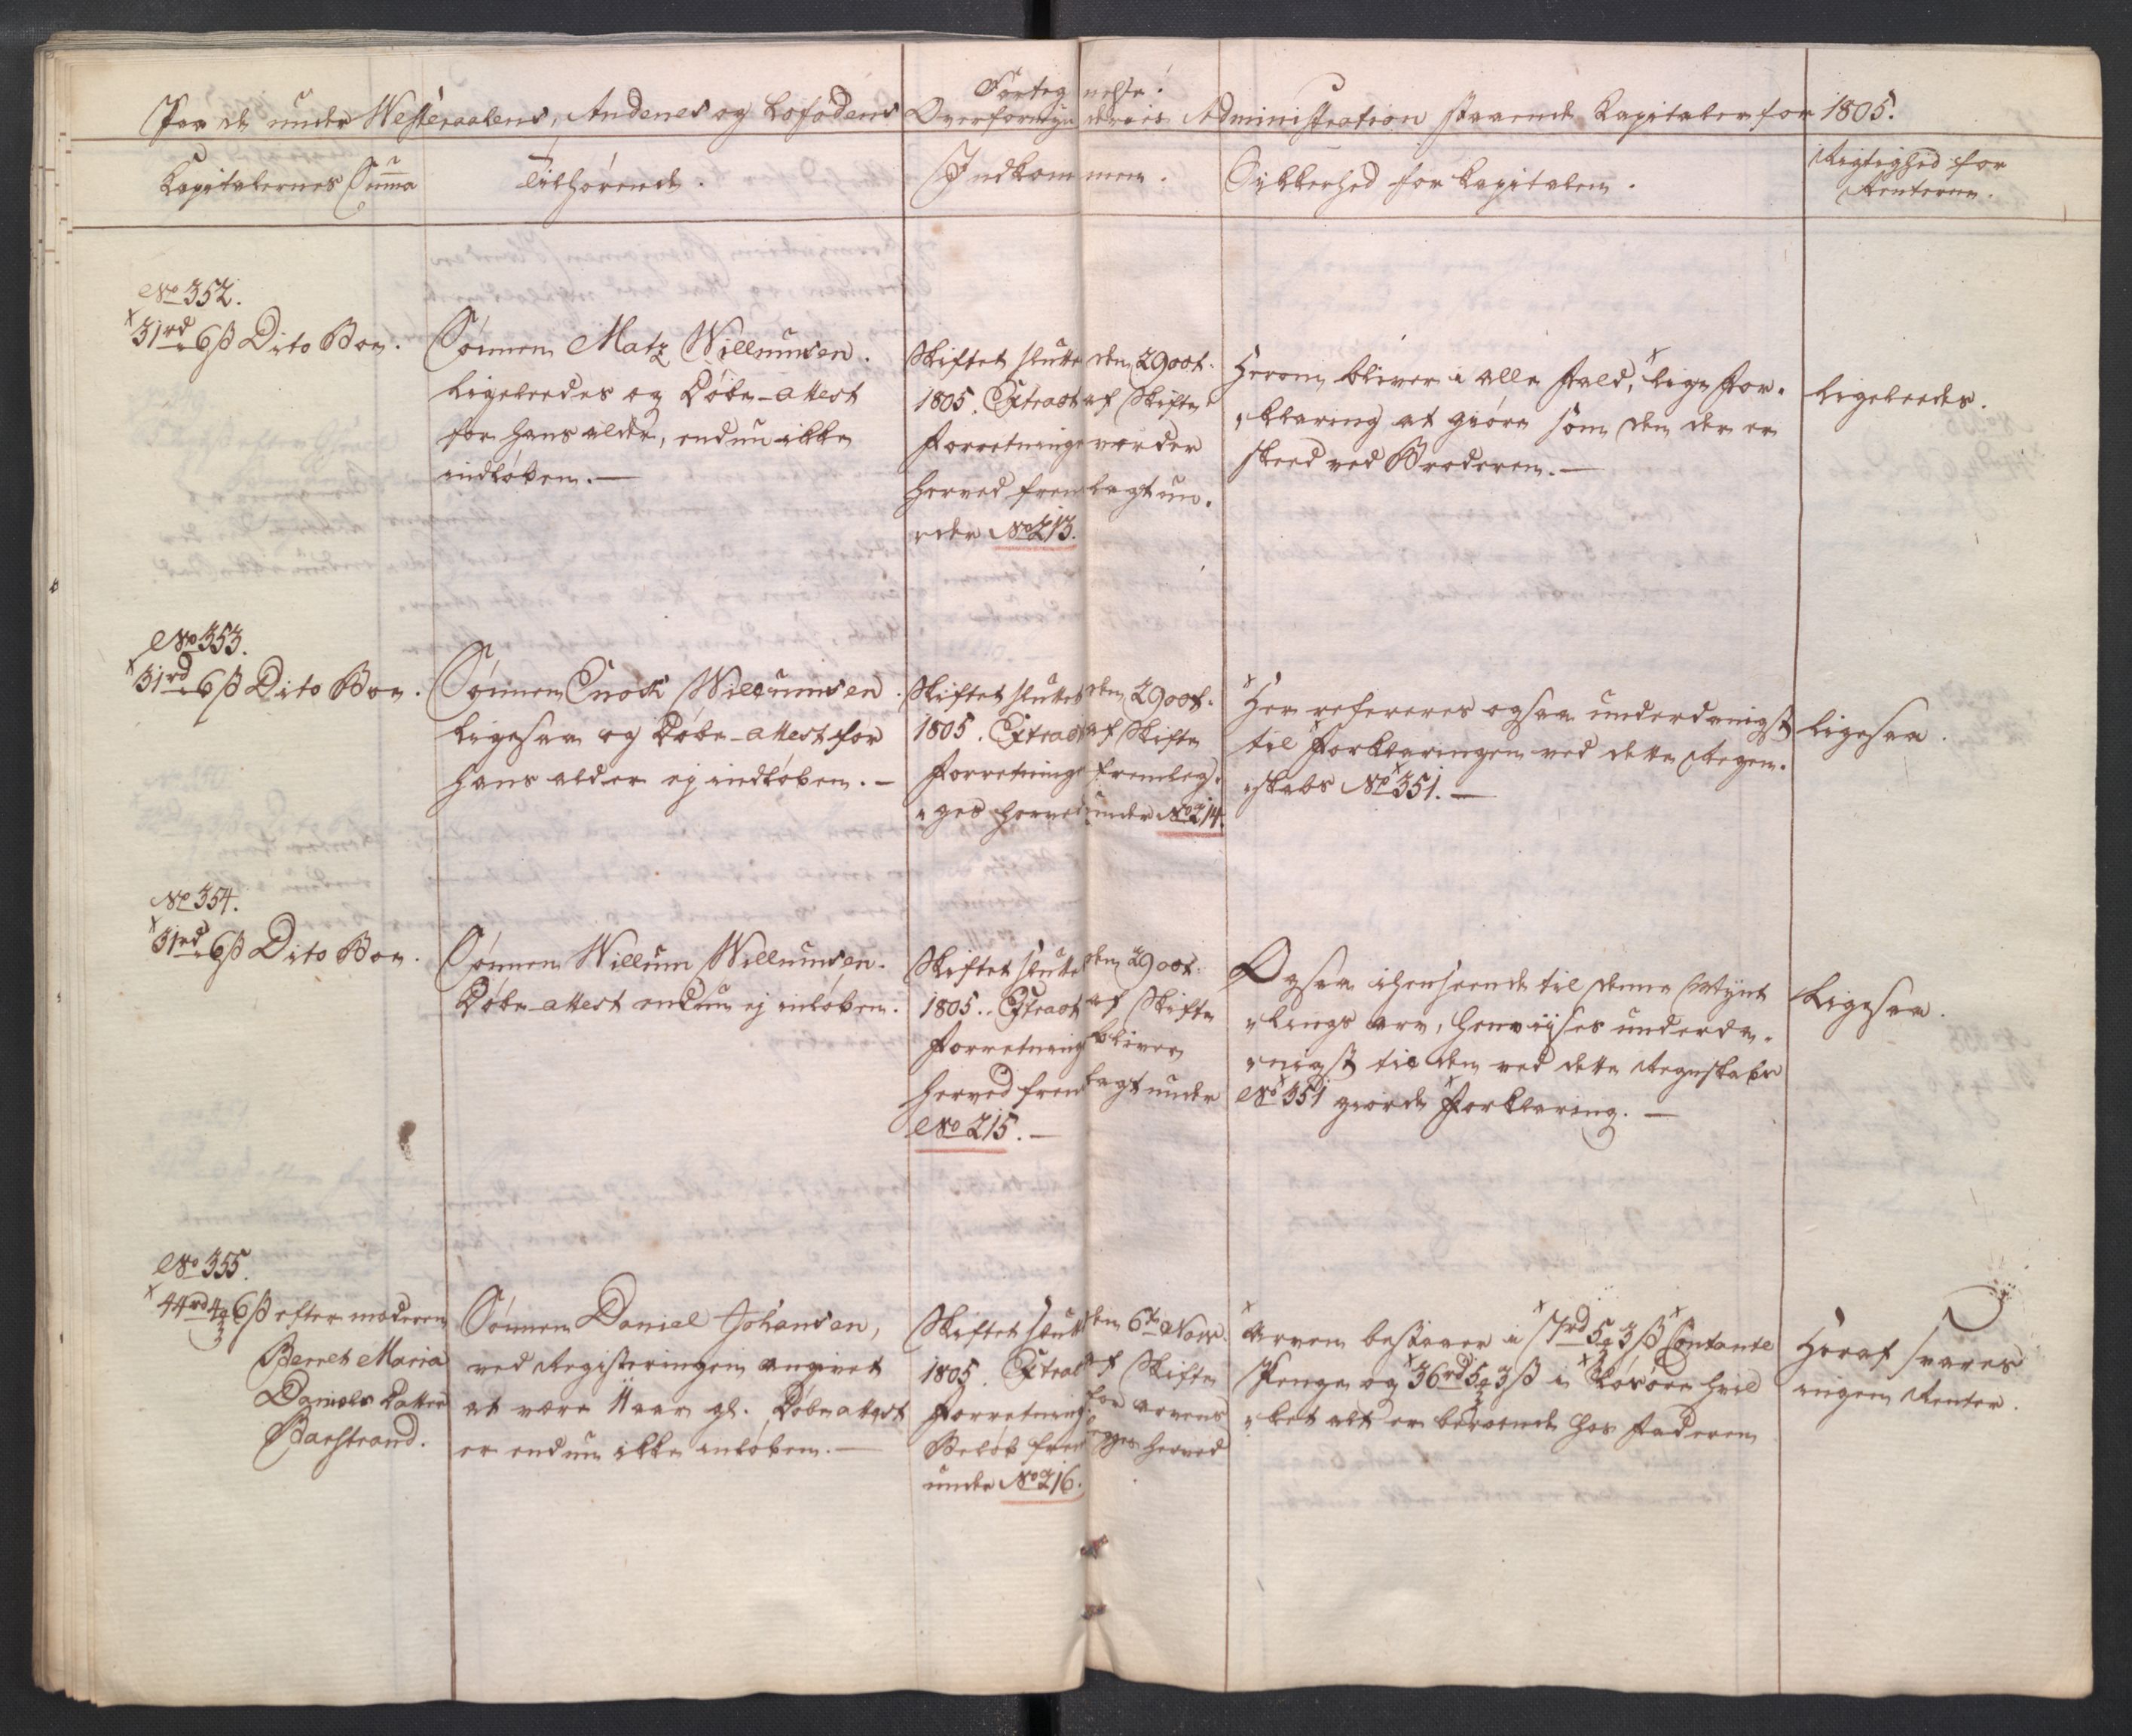 Forteg nelse.
Paa de under Westeraalens, Andenes og Lofodens Overformyn deries Administration staaende Kapitaler for 1805.
Kapitalernes Suma
Tilhørende.
Indkom men.
Sikkerhed for Kapitalen.
Rigtighed for
Renterne.
No 352.
31rd 6ß Dito Boe.
Sønnen Matz Willumsen.
Ligeledes og Døbe-attest
for hans alder, endnu ikke
indløben.—
Skiftet slutte den 29 oct.
1805. Extract af Skifte
Forretninge vorder
herved frem lagt un„
„der No 213.
Herom bliver i alle Fald, lige For„
„klaring at giøre som den der er
skeed ved Broderen.—
Ligeledes.
No 353.
31rd 6ß Dito Boe.
Sønnen Enock Willumsen.
Ligesaa og Døbe-attest for
hans alder ej indløben.—
Skiftet sluttet den 29 oct.
1805. Extract af Skifte
Forretninge fremleg„
„ges herved under No 214.
Her refereres ogsaa underdanigst
til Forklaringen ved dette Regen„
„skabs No 351.—
Ligesaa.
No 354.
31rd 6ß Dito Boe.
Sønnen Willum Willumsen.
Døbe-attest endnu ej inløben.
Skiftet slutte den 29 oct.
1805. Extract af Skifte
Forretning bliver
herved frem lagt under
No 215.—
Ogsaa ihenseende til denne Mynt
„lings arv, henviises underda„
„nigst til den ved dette Regnskabs
No 351 giorde Forklaring.—
Ligesaa.
No 355.
44rd 4 6ß efter moderen
Berret Maria
Daniels Datter
Barstrand.
Sønnen Daniel Johansen,
ved Registeringen angivet
at være 11 aar gl. Døbe attest
er endnu ikke inløben.—
Skiftet slutt den 6te Novr.
1805. Extract af Skifte
Forretning for arvens
Beløb frem legges herved
under No 216.
Arven bestaaer i 7rd 5 3ß Contante
Penge og 36rd 5 3ß i Løsøre hvil
„ket alt er beroende hos Faderen
Heraf svares
ingen Renter.